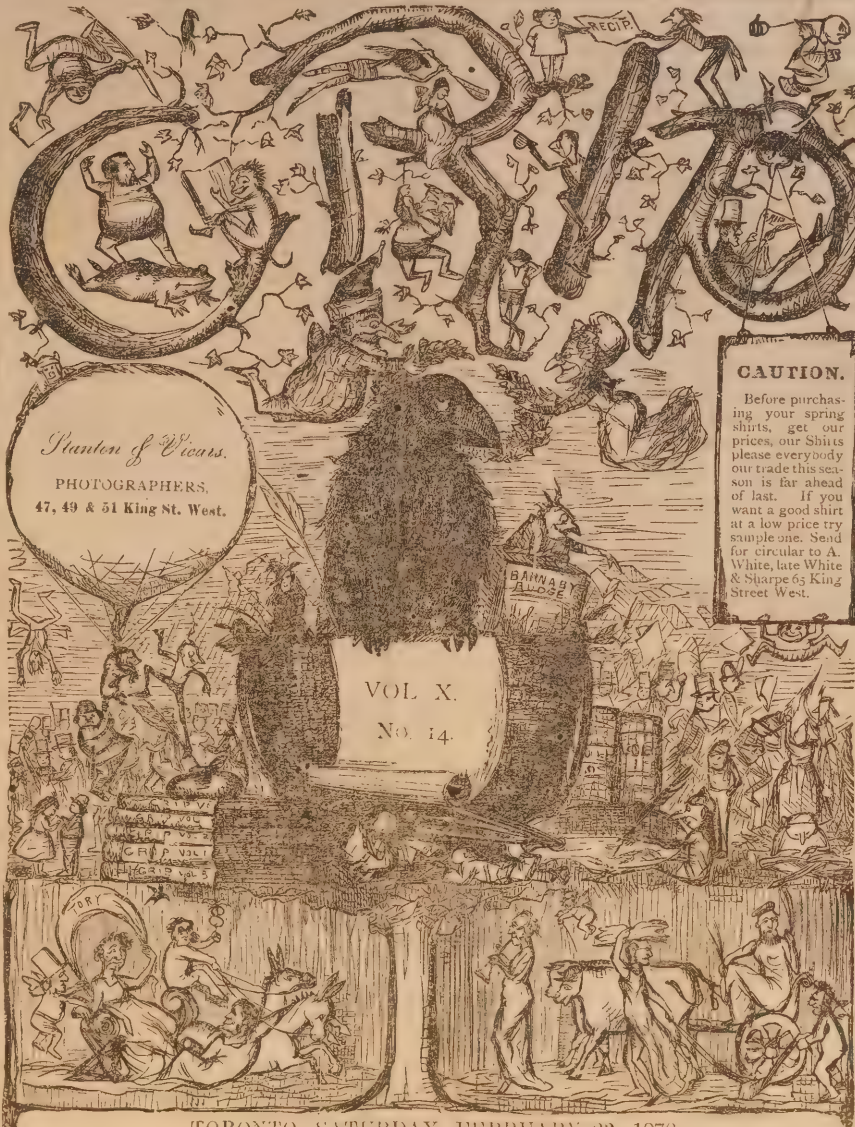 GRIP
RECIP.
Stanton & Vicars,
PHOTOGRAPHERS,
47, 49 & 51 King St. West.
CAUTION.
Before purchas-
ing your spring
shirts, get our
prices, our Shirts
please everybody
our trade this sea-
son is far ahead
of last. If you
want a good shirt
at a low price try
sample one. Send
for circular to A.
White, late White
& Sharpe 65 King
Street West.
BARNABY
RUDGE
VOL X.
No. 14.
GRIP V
GRIP VOL
GRIP VOL
GRIP VOL
GRIP VOL 5
TORY
TORONTO SATURDAY FEBRUARY